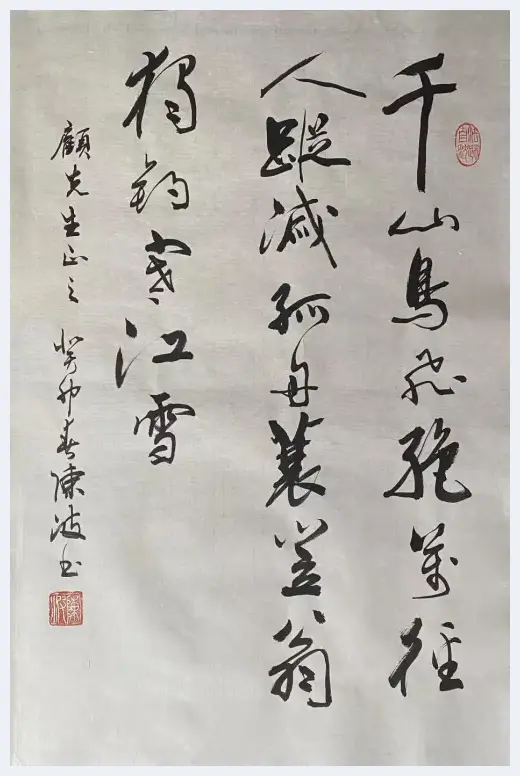 千山鳥飛絶萬徑
人蹤滅孤舟蓑笠翁
獨釣寒江雪
顧先生正之 癸卯春陳波书
陳波